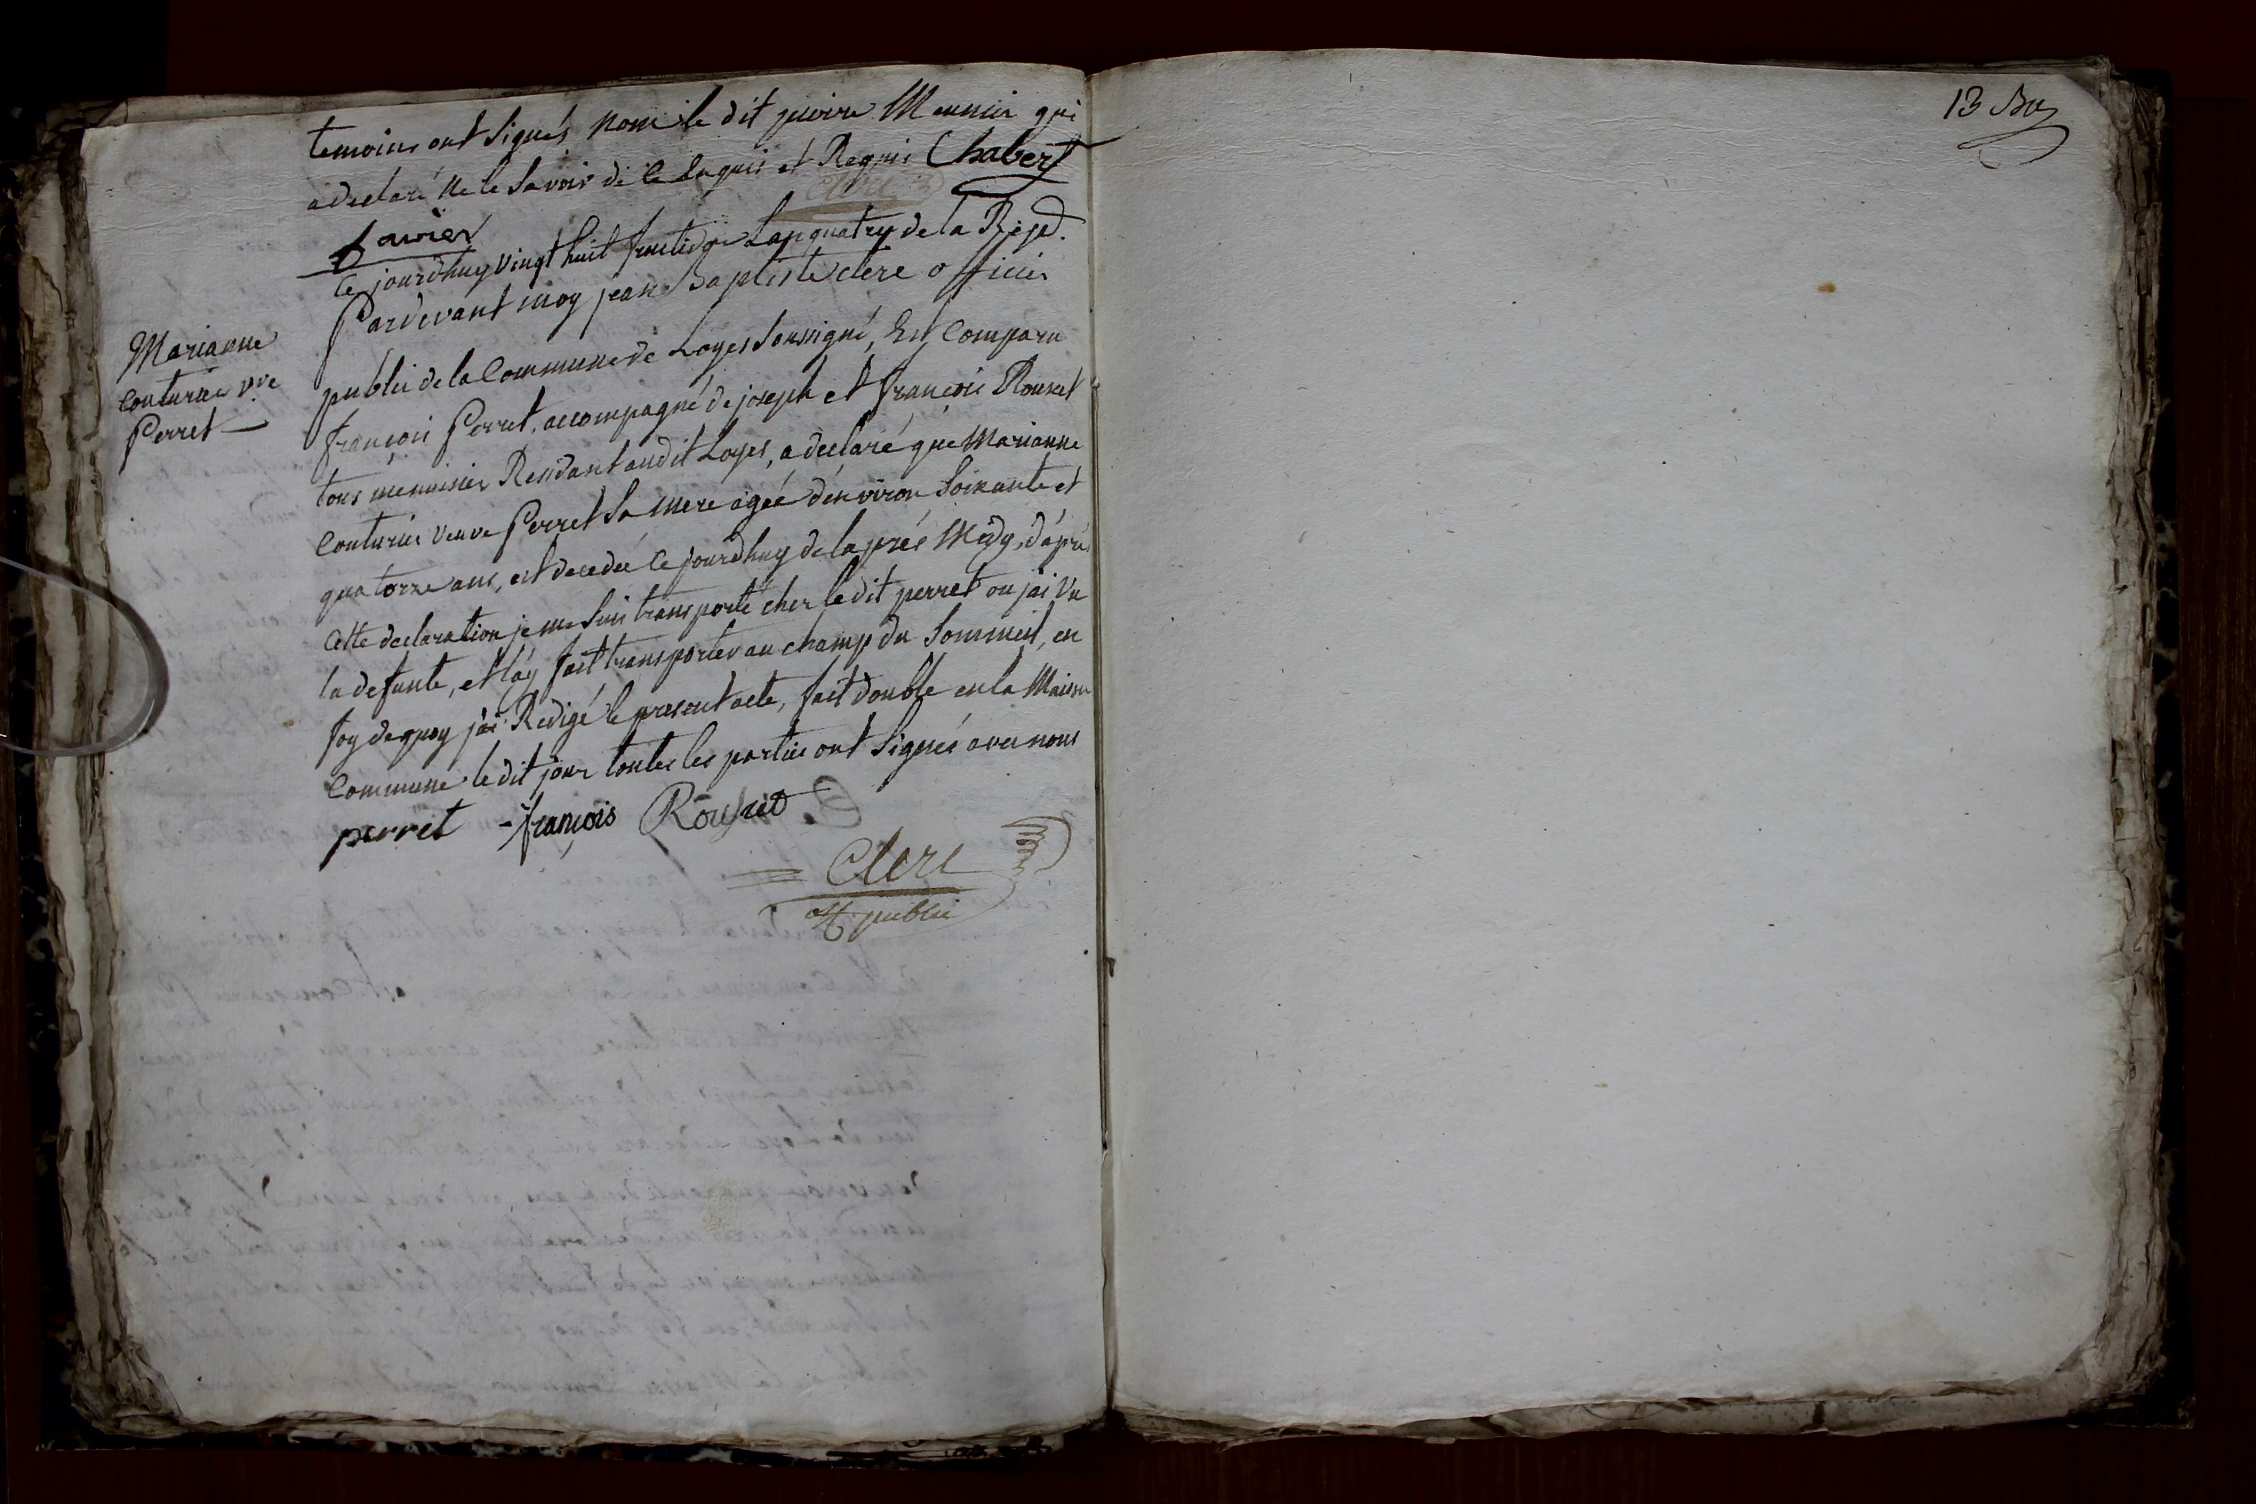 temoins ont signés non le dit pierre Meunier qui
a declaré ne le savoir de ce enquis et Requis Chabert
Clerc
Lavier
Ce jourdhuy vingt huit fructidor Lan quatre de la Rep.
Pardevant moy jean Baptiste clerc officier
public de la Commune de Loyes soussigné, Est Comparu
françois Perret, accompagné de joseph et françois Rousset
tous menuisier Residant audit Loyes, a declaré que Marianne
Couturier veuve Perret sa mere agée denviron soixante et
quatorze ans, est decedée Ce jourdhuy de laprés Midy, d'aprés
Cette declaration je me suis transporté chez le dit perret ou jai vu
la defunte, et lay fait transporter au champ du sommeil, en
foy de quoy jai Redigé le present acte, fait double en la Maison
Commune le dit jour toutes les parties ont signés avec nous
Marianne
Couturier v.ve
Perret
perret - françois Rousset
Clerc
off public
13